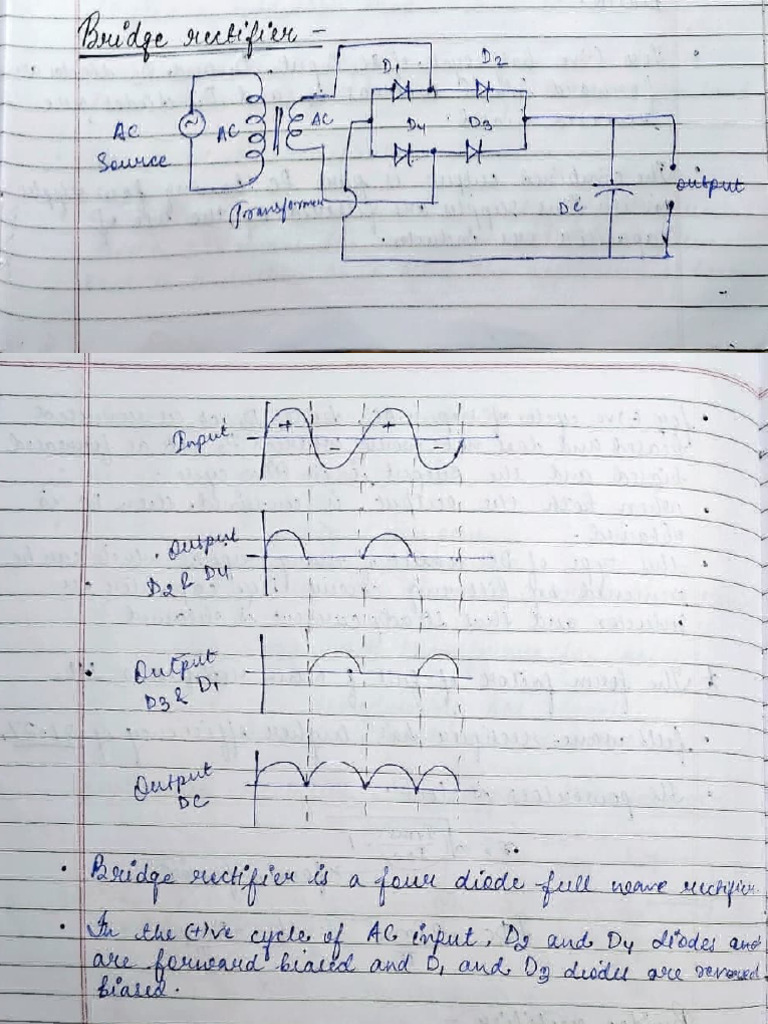 Bridge rectifier -
D1 D2
AC Source
AC
AC
D4 D3
Transformer
DC
output
Input
+ - + -
Output
D2 & D4
Output
D3 & D1
Output
DC
• Bridge rectifier is a four diode full wave rectifier.
• In the (+)ve cycle of AC input, D2 and D4 diodes and
are forward biased and D1 and D3 diodes are reversed
biased.